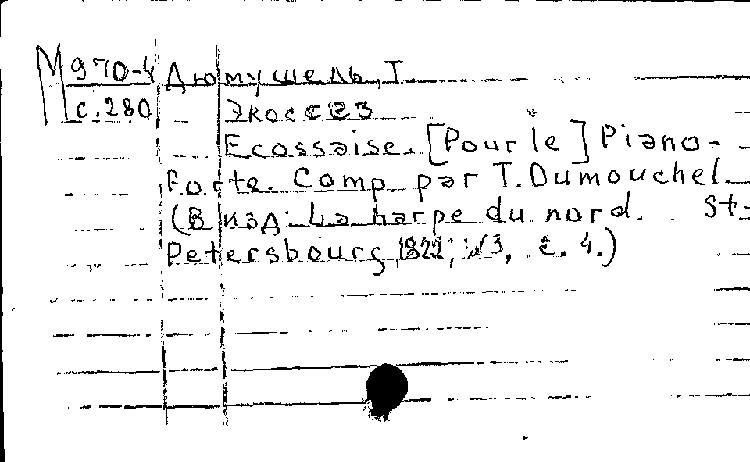 М 970-4 Дюмушель, Т.
с. 280 Экоссез
Ecossaise. [Pour le] Piano-
Forte. Comp. par T. Dumouchel.
(В изд: La harpe du nord. St.
Petersbourg, 1822, №3, с. 4.)